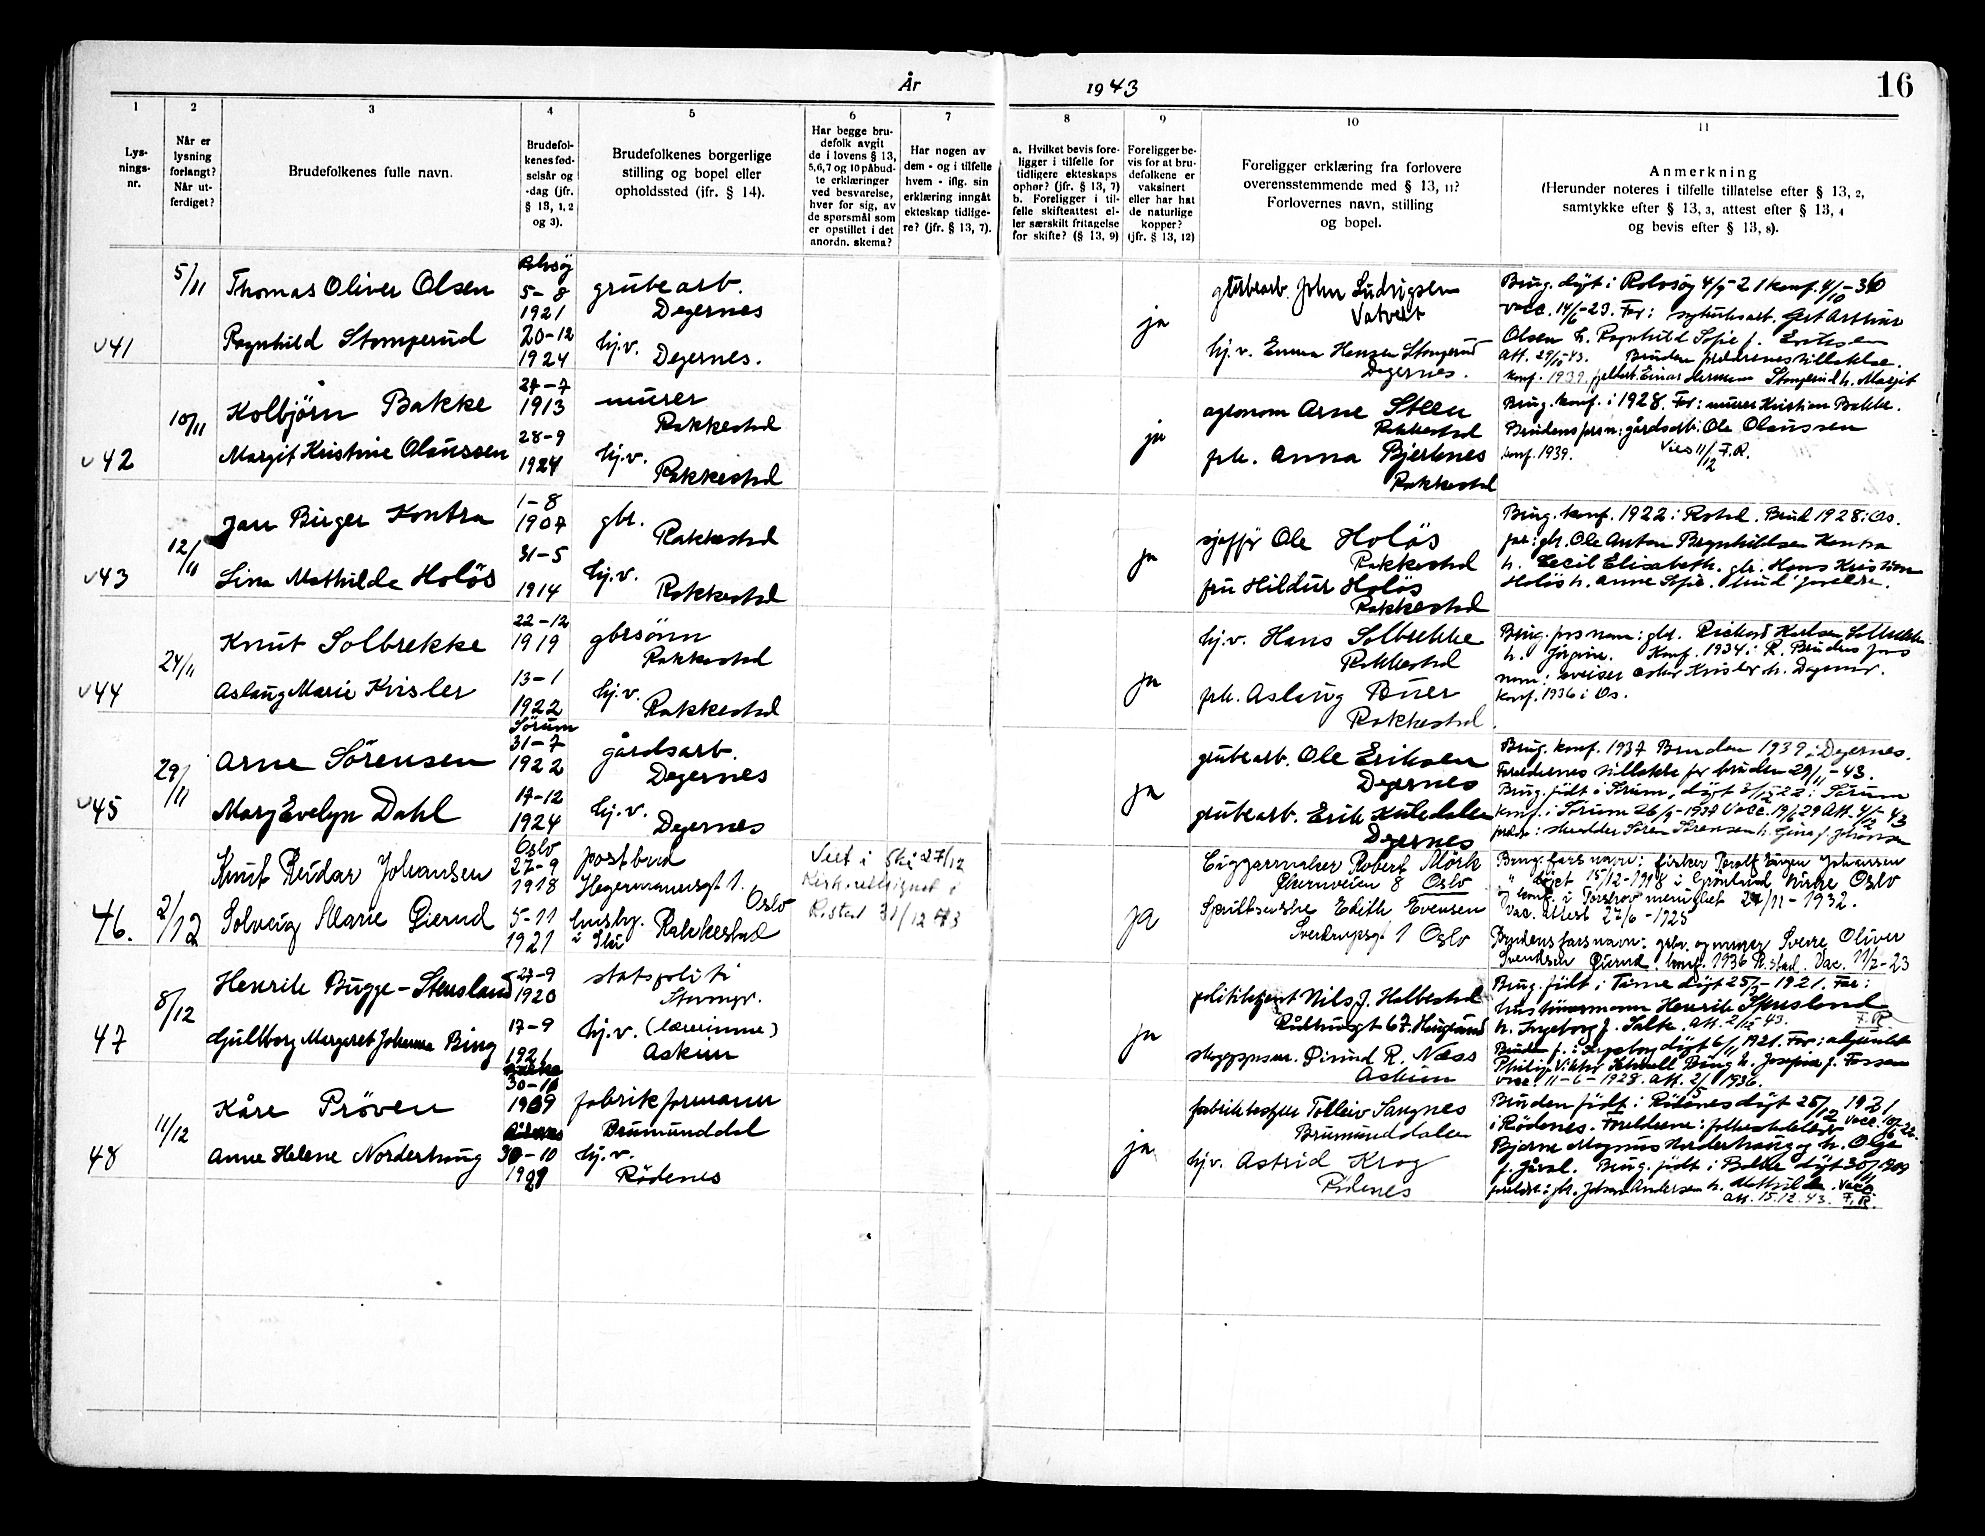 År 1943
16
1 2 3 4 5 6 7 8 9 10 11
Lys-
nings-
nr.
Når er
lysning
forlangt?
Når ut-
ferdiget?
Brudefolkenes fulle navn.
Brudefol-
kenes fød-
selsår og
-dag (jfr.
§ 13, 1, 2
og 3).
Brudefolkenes borgerlige
stilling og bopel eller
opholdssted (jfr. § 14).
Har begge bru-
defolk avgit
de i lovens § 13,
5,6,7 og 10 påbud-
te erklæringer
ved besvarelse,
hver for sig, av
de spørsmål som
er opstillet i det
anordn. skema?
Har nogen av
dem - og i tilfelle
hvem - iflg. sin
erklæring inngåt
ekteskap tidlige-
re? (jfr. § 13, 7).
a. Hvilket bevis fore-
ligger i tilfelle for
tidligere ekteskaps
ophør? (jfr. § 13, 7)
b. Foreligger i til-
felle skifteattest el-
ler særskilt fritagelse
for skifte? (§ 13, 9)
Foreligger be-
vis for at bru-
defolkene er
vaksinert
eller har hat
de naturlige
kopper?
(jfr. § 13, 12)
Foreligger erklæring fra forlovere
overensstemmende med § 13, 11?
Forlovernes navn, stilling
og bopel.
Anmerkning
(Herunder noteres i tilfelle tillatelse efter § 13, 2,
samtykke efter § 13, 3, attest efter § 13, 4
og bevis efter § 13, 8).
41
5/11
Thomas Oliver Olsen
Ragnhild Stomperud
Rolvsøy
5-8
1921
20-12
1924
grubearb.
Degernes
hj.v. Degernes.
ja
grubearb. John Ludvigsen
hj.v. Emma Hansen Stomperud
Degernes.
Brug. døpt i Rolvsøy 4/9-21 konf. 4/10-36
vacc. 14/6-23. Far: Gert Arthur
Olsen h. Ragnhild Sofie f.
Att. 29/10-43. Bruden foreldrenes tillatelse.
konf. 1939. Einar Herman Stomperud h. Margit
42
10/11
Kolbjörn Bakke
Margit Kristine Olaussen
27-7
1913
28-9
1924
murer
Rakkestad
hj.v.
Rakkestad
ja
agronom Arne Steen
Rakkestad
frk. Anna Bjerknes
Rakkestad
Brug. konf. i 1928. Far: murer Kristian Bakke.
Brudens farsn: gårdsarb. Ole Olaussen
konf. 1939. Vies 11/12 F.R.
43
12/11
Jan Birger Kontra
Lina Mathilde Holös
1-8
1907
31-5
1914
gbr.
Rakkestad
hj.v.
Rakkestad
ja
sjåfør Ole Holös
Rakkestad
fru Hildur Holös
Rakkestad
Brug. konf. 1922 i Rstad. Brud 1928 i Os.
far: gbr. Ole Anton Kontra
h. Cecil Elisabeth. gbr. Hans Kristian
Holös h. Anne Sofie.
44
24/11
Knut Solbrekke
Aslaug Marie Kvisler
22-12
1919
13-1
1922
gbrsønn
Rakkestad
hj.v.
Rakkestad
ja
hj.v. Hans Solbrekke
Rakkestad
frk. Aslaug Buer
Rakkestad.
Brug. fars navn: gbr. Richard Karlsen Solbrekke
h. Jörgine. Konf. 1934 i R. Brudens fars
navn: Kvisler h. Dagmar.
konf. 1936 i Os.
45
29/11
Arne Sörensen
Mary Evelyn Dahl
Sörum
31-7
1922
17-12
1924
gårdsarb.
Degernes
hj.v.
Degernes
ja
grubearb. Ole Eriksen
Degernes
grubearb. Erik
Degernes
Brug. konf. 1937 Bruden 1939 i Degernes.
Foreldrenes tillatelse for bruden 29/11-43.
Brug. födt i Sörum, döpt i Sörum
konf. i Sörum 26/9-1937
Sören Sörensen h. Gina f.
46.
2/12
Knut Reidar Johansen
Solveig Marie Gierud
Oslo
27-9
1918
5-11
1921
postbud
Hegermannsgt 1.
Oslo
husbg.
i Ski Rakkestad
Viet i Ski 27/12
Kirk. velsignet i
R.stad 31/12 43
ja
Ciggarmaker Robert Mörk
Økernveien 8 Oslo
Edith Evensen
Sverdrupsgt 1 Oslo
Brug. farsnavn: fisker Johansen
" döpt 15/12-1918 i Grönland kirke Oslo
konf. i menighet 27/11-1932.
Vac. attest 27/6-1925
Brudens farsnavn: gbr. og murer Sverre Oliver
Svendsen Gierud. konf. 1936 R.stad. Vac. 11/7-23
47
8/12
Henrik Bugge-Stensland
Gullborg Margaret Johanna Bing
27-9
1920
17-9
1921
statspoliti
hj.v. (lærerinne)
Askim
ja
politibetjent Nils J. Halbestad
Øivind R. Næss
Askim
Brug. födt i döpt 25/ -1921. Far:
Henrik Stensland
h. Ingeborg f. Salte. att. 2/12 43. F.R.
Bruden f. i döpt 6/11 1921. Far:
Philip Viktor Bing h. Josefine f.
vacc. 11-6-1928. att. 2/5 1936.
48
11/12
Kåre Pröven
Anne Helene Norderhaug
30-10
1909
30-10
1921
fabrikformann
Brumunddal
hj.v.
Rödenes
ja
Tolleiv Sangnes
Brumunddalen
hj.v. Astrid Krog
Rödenes
Bruden födt i Rödenes döpt 26/12 1921
i Rödenes. Foreldrene:
Bjarne Magnus Norderhaug og h. Olga
f. Brug. födt i döpt 30/11 1909
foreldre: Johan Andersen h. Mathilde. Vacc.
att. 15.12.43. F.R.